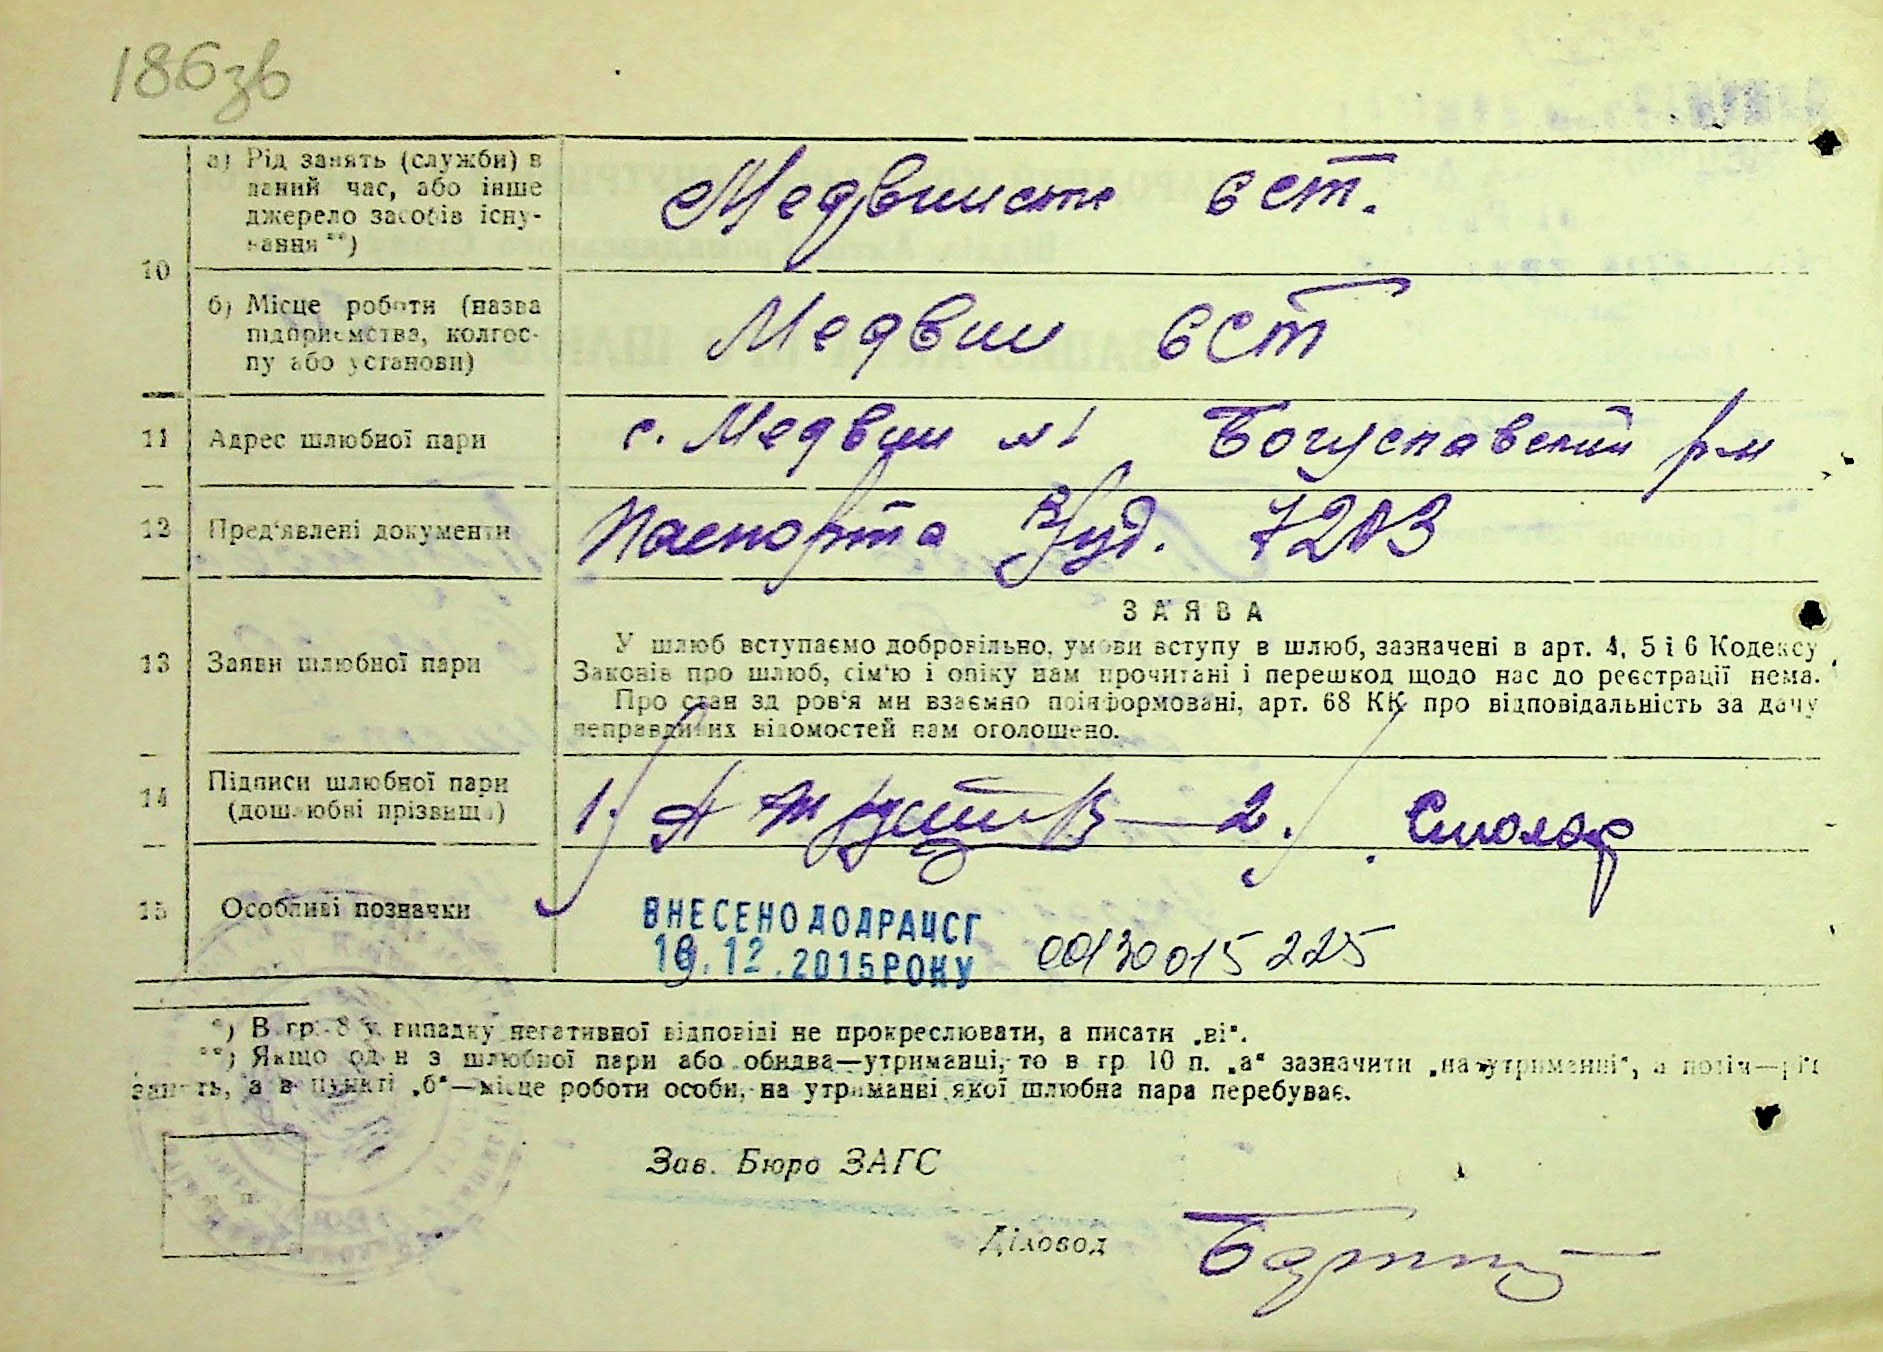 186зв
10
а) Рід занять (служби) в
даний час, або інше
джерело засобів існу-
вання **)
ЄСТ.
б) Місце роботи (назва
підприємства, колгос-
пу або установи)
Медвин ЄСТ
11
Адрес шлюбної пари
с. Медвин Богуславский р-н
12
Пред'явлені документи
Паспорта 7203
13
Заяви шлюбної пари
ЗАЯВА
У шлюб вступаємо добровільно, умови вступу в шлюб, зазначені в арт. 4, 5 і 6 Кодексу
Законів про шлюб, сім'ю і опіку нам прочитані і перешкод щодо нас до реєстрації нема.
Про стан здоров'я ми взаємно поінформовані, арт. 68 КК про відповідальність за дачу
неправдивих відомостей нам оголошено.
14
Підписи шлюбної пари
(дошлюбні прізвища)
1. 2. Столяр
15
Особливі позначки
ВНЕСЕНО ДО ДРАЦСГ
19.12.2015 РОКУ
00130015225
*) В гр. 8 у випадку негативної відповіді не прокреслювати, а писати „ні“.
**) Якщо один з шлюбної пари або обидва—утриманці, то в гр 10 п. „а“ зазначити „на утриманні“, а потім—рід
занять, а в пункті „б“—місце роботи особи, на утриманні якої шлюбна пара перебуває.
Зав. Бюро ЗАГС
Діловод